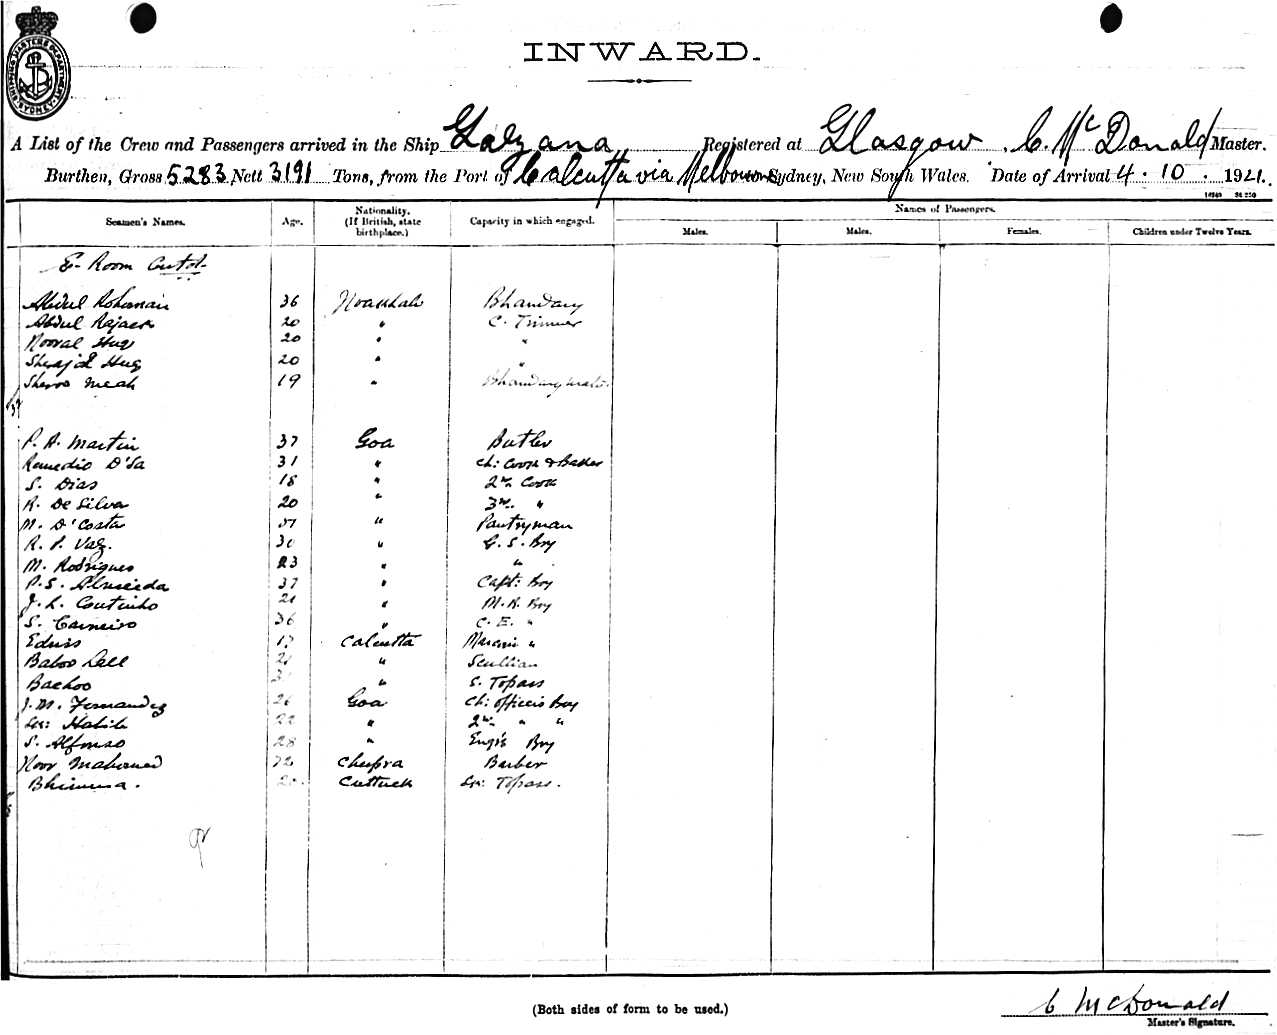 SHIPPING MASTERS DEPARTMENT. SYDNEY
INWARD.
A List of the Crew and Passengers arrived in the Ship Galzana Registered at Glasgow. C. McDonald Master.
Burthen, Gross 5283 Nett 3191 Tons, from the Port of Calcutta via Melbourne Sydney, New South Wales. Date of Arrival 4.10.1921.
Seamen's Names. Age. Nationality. (If British, state birthplace.) Capacity in which engaged. Names of Passengers.
Males. Males. Females. Children under Twelve Years.
E. Room Contd.
Abdul Rohoman 36 Noakhali Bhandary
Abdul Rajack 20 " C. Trimmer
Nooral Huq 20 " "
Sherajol Huq 20 " "
Sheroo Meah 19 " Bhandarymate
P. A. Martin 37 Goa Butler
Remedio D'Sa 31 " Ch: Cook & Baker
S. Dias 18 " 2nd Cook
R. De Silva 20 " 3rd "
M. D'Costa 37 " Pantryman
R. P. Vaz. 30 " G. S. Boy
M. Rodrigues 23 " "
P. S. Almeida 37 " Capt: Boy
J. L. Coutinho 21 " M. R. Boy
S. Carneiro 36 " C. E. "
Edris Calcutta Marconi "
Baboo Lall 21 " Scullian
Bachoo " S. Topass
J. M. Fernandez 26 Goa Ch: officers Boy
22 " 2nd " "
S. Alfonso 28 " Engrs Boy
Noor Mahomed 32 Chupra Barber
Bhimma. 20 Cuttuck Topass.
(Both sides of form to be used.)
C McDonald
Master's Signature.